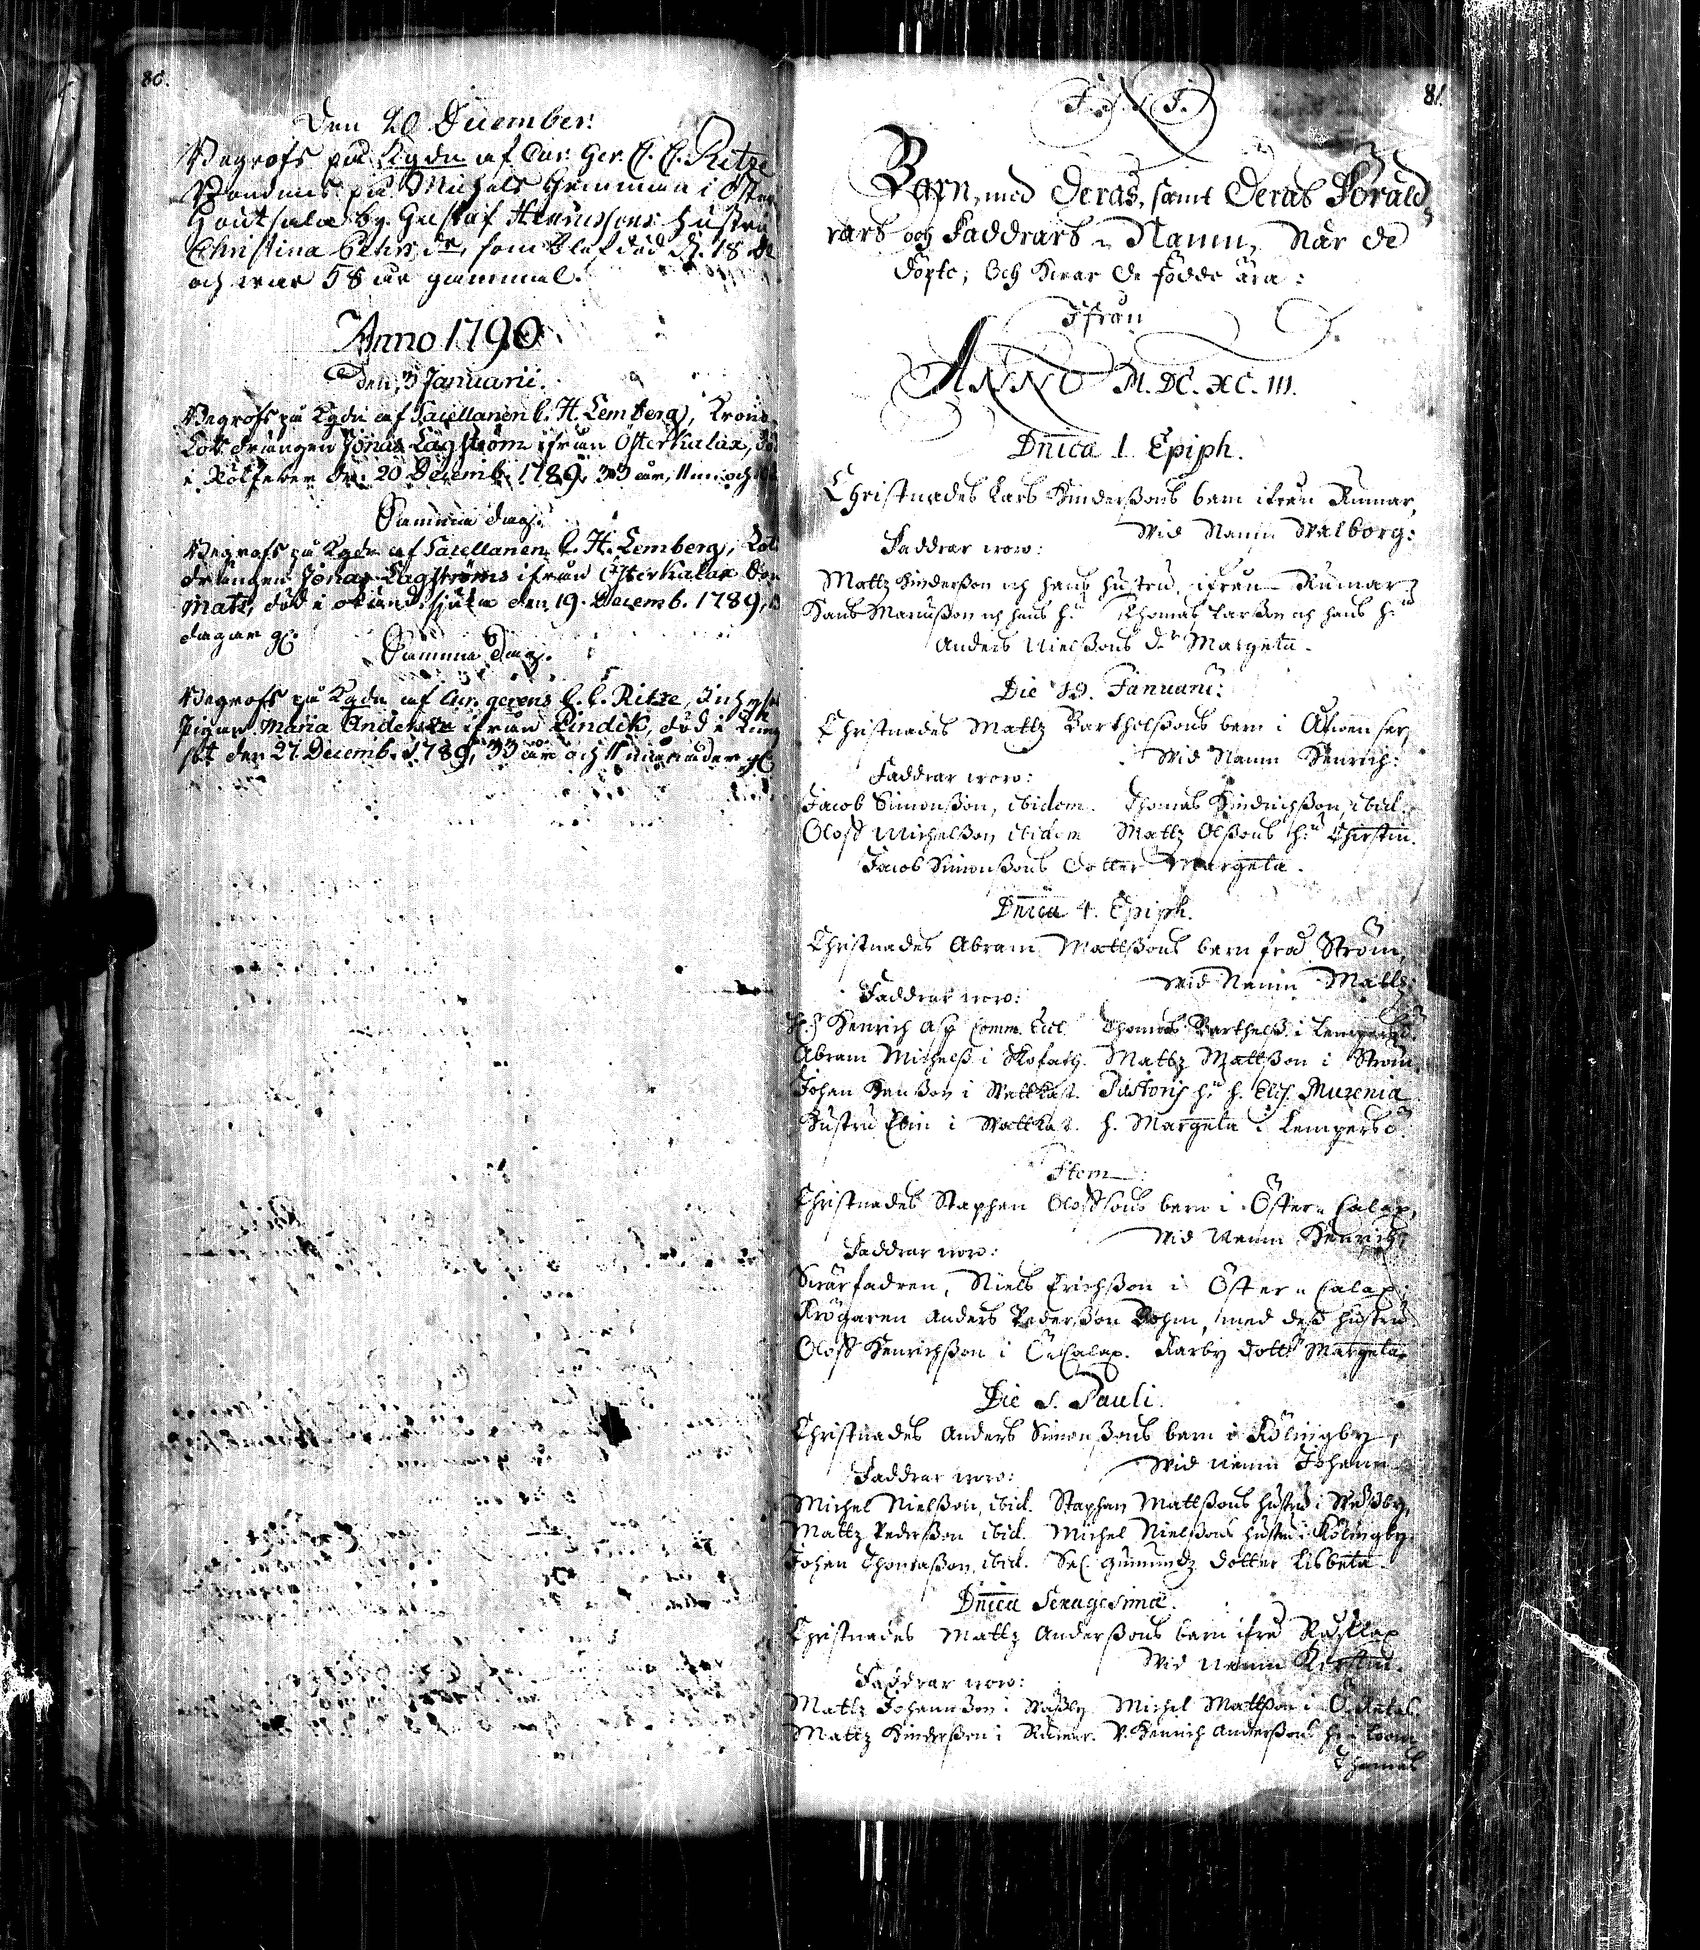 80.
Den 20 December.
Begrofs på Kgdn af Cur. Ger. C. C. Ritze
Bondens på Michels hemman i Öster
Houtskala by Gustaf Henricssons hustru
Christina Ersdr, som blef död d. 18
och war 58 åhr gammal.
Anno 1790
Den 3 Januarii.
Begrofs på Kgdn af Sacellanen C. H. Lemberg, Krono
Lots drängen Jonas Lagström ifrån Österkalax, död
i Rötfeber den 20 Decemb. 1789, 33 åar, 11 m. och
Samma dag.
Begrofs på Kgdn af Sacellanen C. H. Lemberg, Lots
drängen Jonas Lagströms ifrån Österkalax Son
Mats, död i okänd sjuka den 19. Decemb. 1789,
dagar gl.
Samma dag.
Begrofs på Kgdn af Cur. gerens C. C. Ritze, Inhyses
Pigan Maria Andersdr ifrån Lindik, död i Lung
sot den 27 Decemb. 1789, 33 åar och 11 månader gl.
81.
Barn, med Deras, samt Deras Förald
rars och Faddrars Namn, När de
Döpte, Och Hwar De födde ära:
Ifrån
ANNO M.DC.XC.III.
Dnica 1. Epiph.
Christnades Lars Hinderssons barn ifrån Rumar,
Wid Namn Walborg:
Faddrar woro:
Mattz Hindersson och hans hustru, ifrån Rumar
Hans Manusson och hans h. Thomas Larsson och hans h.
Anders Nielssons dr Margeta.
Die Januarii:
Christnades Mattz Barthelssons barn i
Wid Namn Henrich:
Faddrar woro:
Jacob Simonsson, ibidem. Thomas Hindrichsson, ibid.
Oloff Michelsson ibidem Mattz Olssons h. Chirstin.
Jacob Simonssons Dotter Margeta.
Dnica 4. Epiph.
Christnades Abram Mattssons barn frå Ström,
Wid Namn Mattz:
Faddrar woro:
Henrich Comm. Thomas Barthelss. i Lempersö.
Abram Michelss i Mattz Mattsson i Ström
Johan Hensson i Wattkast. Pastoris h. h. Elis. Murenia
Hustru Elin i Wattkast. h. Margeta i Lempersö.
Item:
Christnades Staphan Oloffsons barn i Öster Calax,
Wid Namn Henrich:
Faddrar woro:
Swärfadren, Niels Erichsson i Öster Calax;
Krögaren Anders Pedersson Bohm, med dess hustru
Oloff Henrichsson i Ö Calax. Karby dottr Margeta.
Die S. Pauli.
Christnades Anders Simonssons barn i Kölingby,
Wid namn Johann
Faddrar woro:
Michel Nielsson, ibid. Staphan Mattssons hustru i
Mattz Pedersson ibid. Michel Nielssons hustru i Kölingby
Johan Thomasson, ibid. Sal. Gumundz dotter Lisbeta.
Dnica Sexagesima.
Christnades Mattz Anderssons barn ifrå
Wid namn Kirstin.
Faddrar woro:
Mattz Johansson i Michel Mattsson i
Mattz Hindersson i Rumar. Henrich Anderssons
Thomas